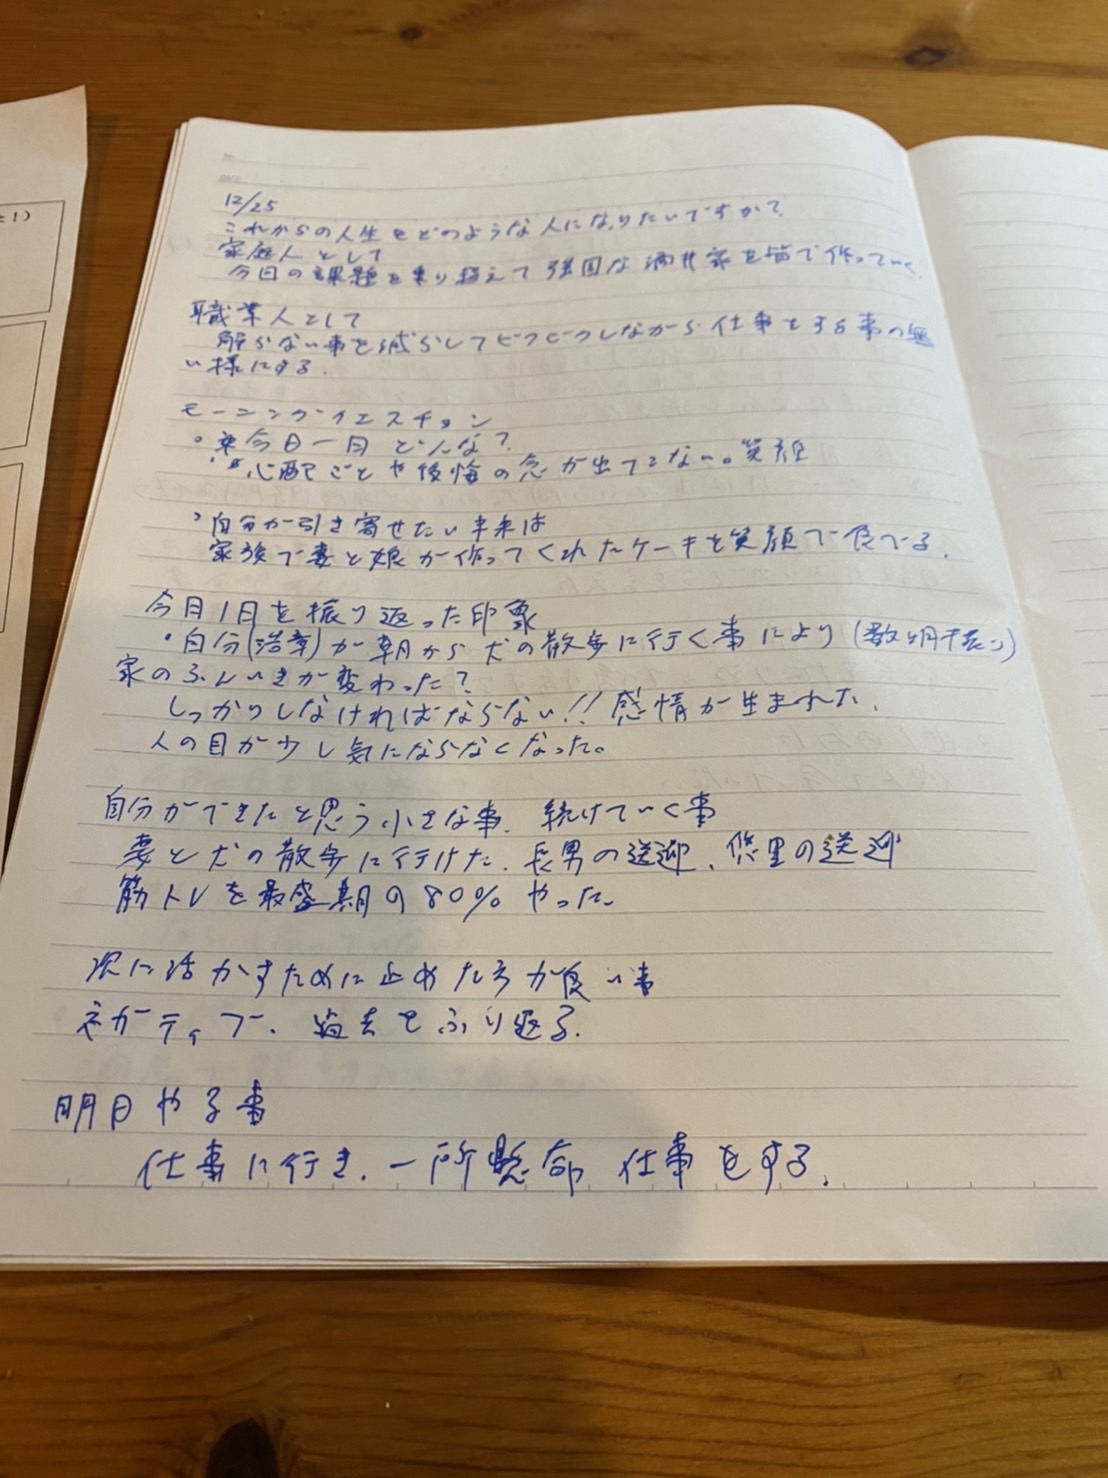 12/25
これからの人生をどのような人になりたいですか?
家庭人として
今回の課題を乗り越えて強固な酒井家を皆で作っていく
職業人として
解らない事を減らしてビクビクしながら仕事をする事の無
い様にする.
モーニングクエスチョン
・今日一日どんな?
・心配ごとや後悔の念が出てこない。笑顔
・自分が引き寄せたい未来は
家族で妻と娘が作ってくれたケーキを笑顔で食べる.
今日1日を振り返った印象
・自分(浩章)が朝から犬の散歩に行く事により(数ヶ月振り)
家のふんいきが変わった?
しっかりしなければならない!!感情が生まれた.
人の目が少し気にならなくなった。
自分ができたと思う小さな事. 続けていく事
妻と犬の散歩に行けた. 長男の送迎、悠里の送迎
筋トレを最盛期の80%やった.
次に活かすために止めた方が良い事
ネガティブ. 過去をふり返る.
明日やる事
仕事に行き. 一所懸命 仕事をする.
±1)